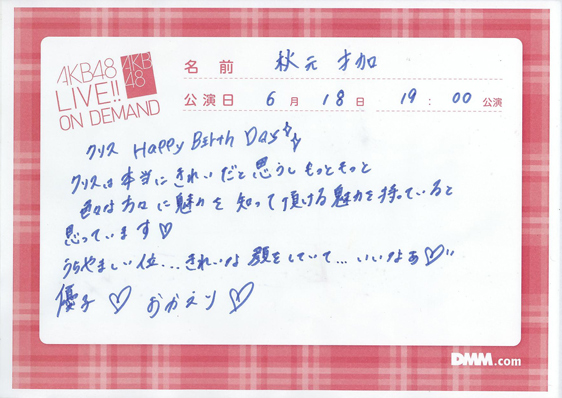 AKB48
LIVE!!
ON DEMAND
AKB
48
名前 秋元才加
公演日 6月18日 19:00公演
クリス Happy Birth Day
クリスは本当にきれいだと思うし もっともっと
色々な方々に魅力を知って頂ける魅力を持っていると
思っています♡
うらやましい位...きれいな顔をしていて...いいなぁ♡"
優子♡ おかえり♡
DMM.com